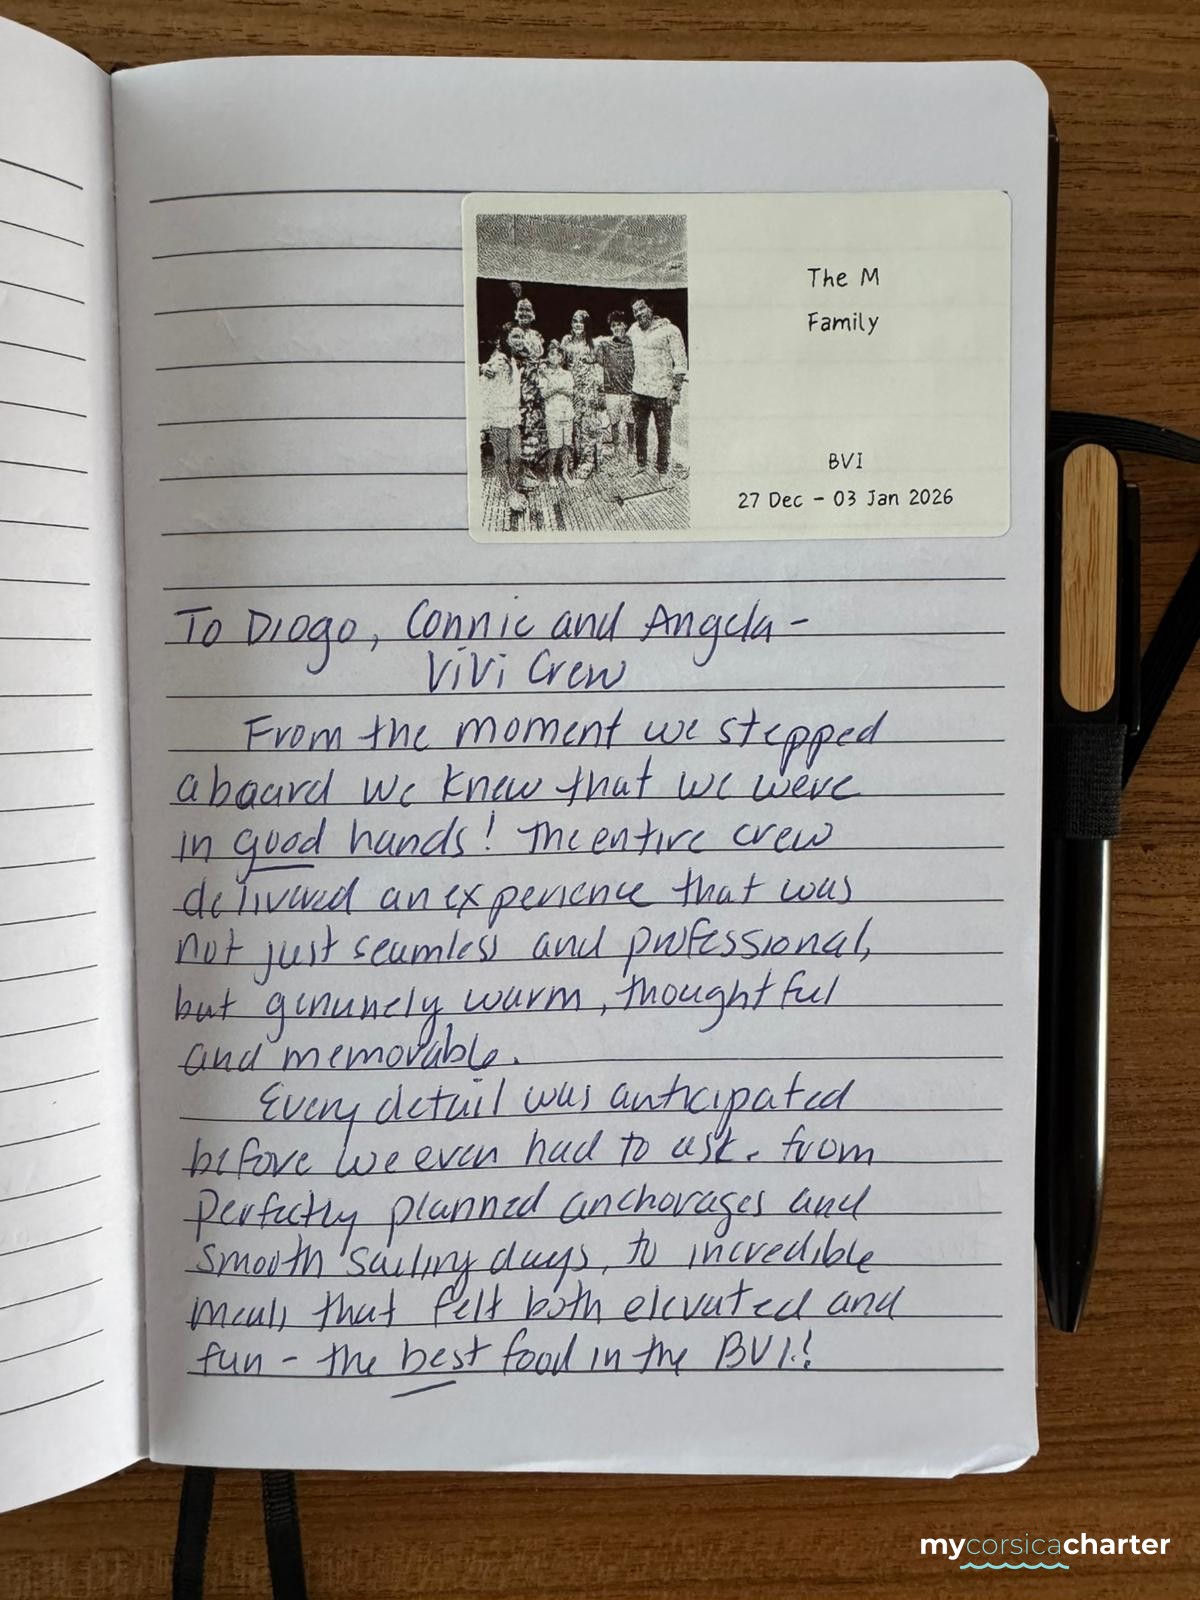 The M
Family
BVI
27 Dec - 03 Jan 2026
To Diogo, Connie and Angela -
ViVi Crew
From the moment we stepped
aboard we knew that we were
in good hands! The entire crew
delivered an experience that was
not just seamless and professional,
but genuinely warm, thoughtful
and memorable.
Every detail was anticipated
before we even had to ask. From
perfectly planned anchorages and
smooth sailing days, to incredible
meals that felt both elevated and
fun - the best food in the BVI!
mycorsicacharter